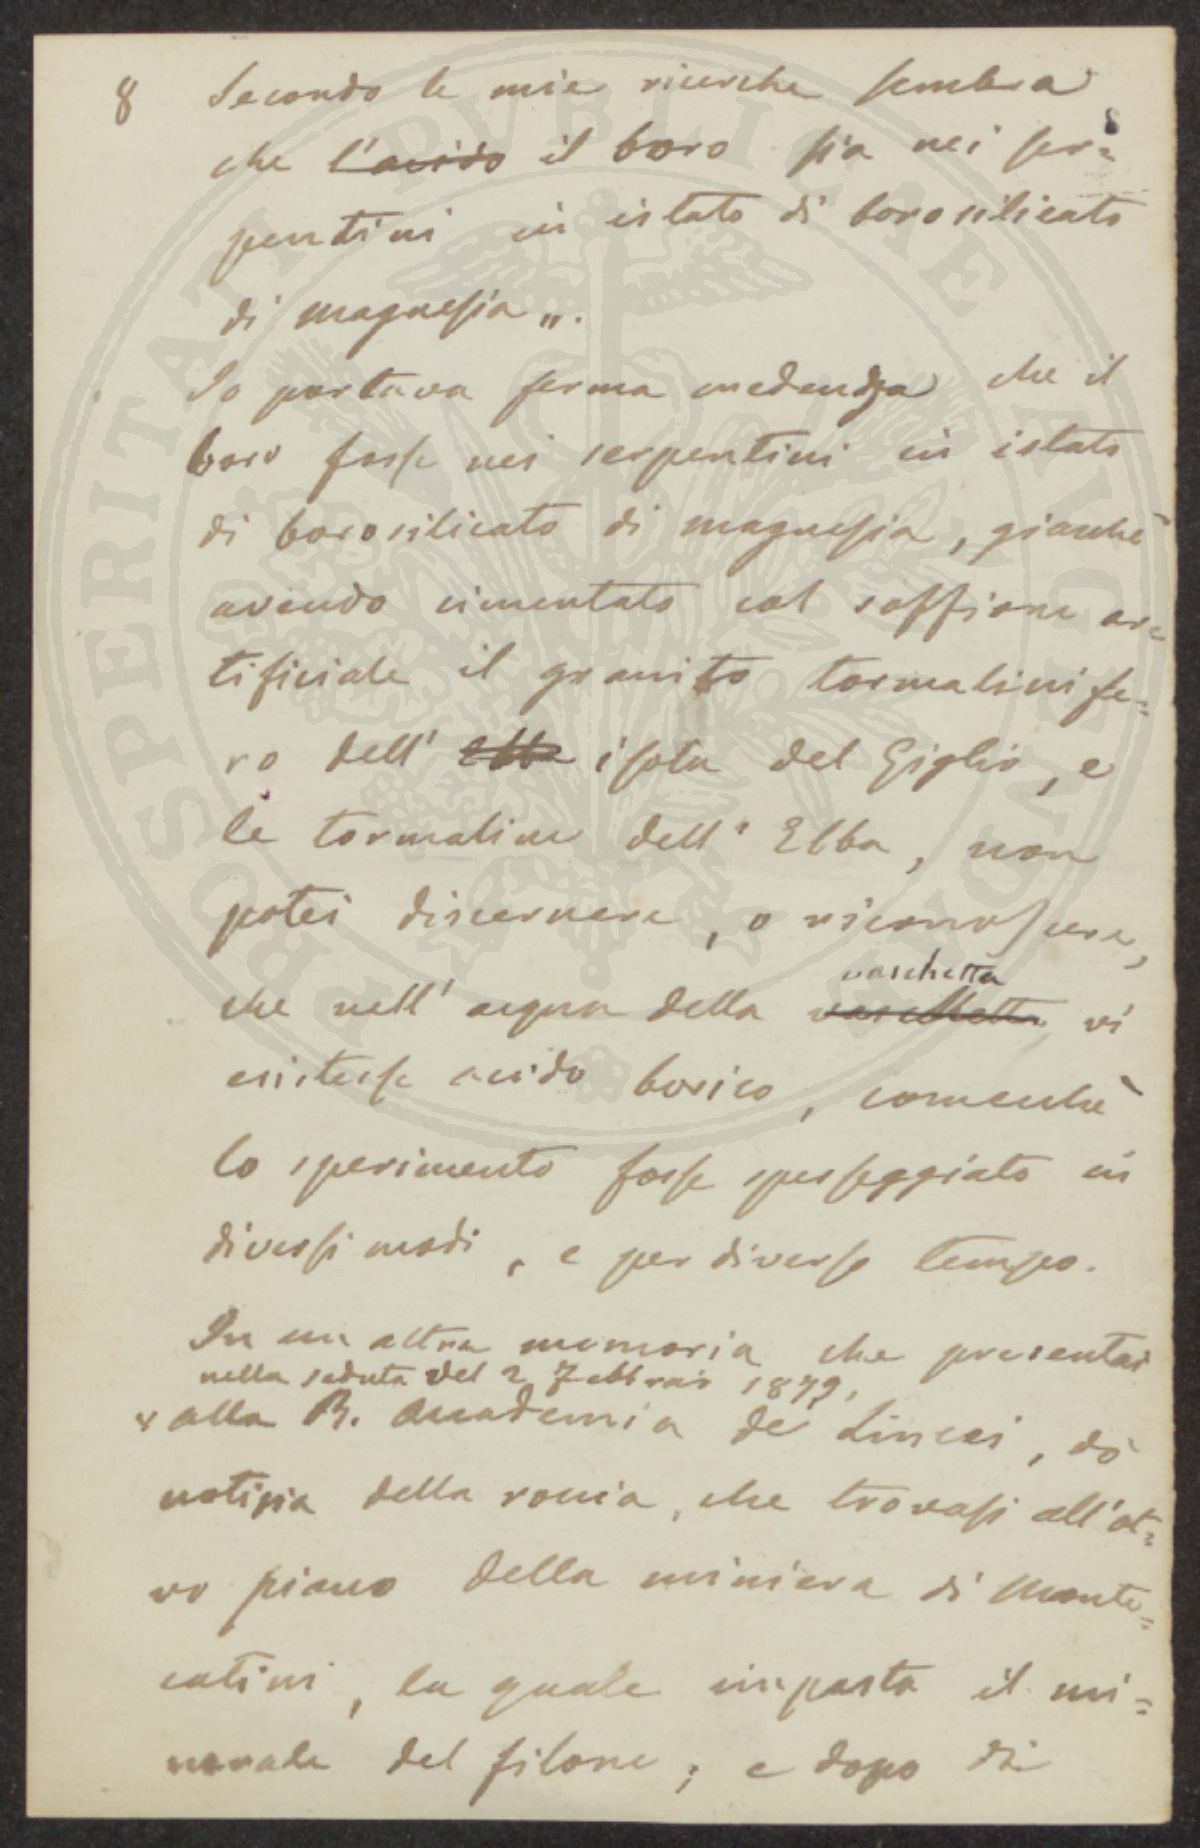 8 Secondo le mie ricerche sembra
8
che l'acido il boro sia nei ser=
pentini in istato di borosilicato
di magnesia „.
Io portava ferma credendza che il
boro fosse nei serpentini in istato
di borosilicato di magnesia, giacchè
avendo cimentato col soffione ar=
tificiale il granito tormalinife=
ro dell' Elba isola del Giglio, e
le tormaline dell' Elba, non
potei discernere, o riconoscere,
vaschetta
che nell' acqua della vaschetta vi
esistesse acido borico, comecchè
lo sperimento fosse spesseggiato in
diversi modi, e per diverso tempo.
In un altra memoria che presentai
nella seduta del 2 Febbraio 1879,
alla R. Accademia de' Lincei, dò
notizia della roccia, che trovasi all'ot=
vo piano della miniera di Monte=
catini, la quale impasta il mi=
nerale del filone; e dopo di
PROSPERITATI PVBLICAE AVGENDAE